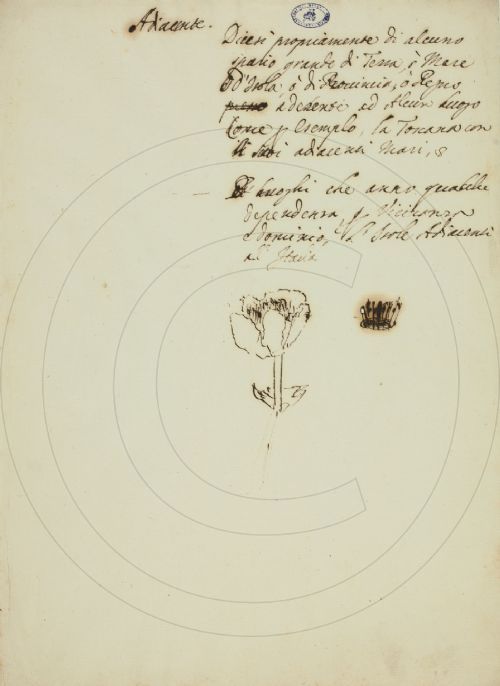 Adiacente.
Dicesi propriamente di alcuno
spatio grande di Terra, ò Mare
ò d'Isola ò di Provincia, ò Regno
aderente ad Alcun luogo
Come p Esempio, la Toscana con
li suoi adiacenti Mari, &
luoghi che anno qualche
dependenza, p Vicinanza
ò dominio, Isole Adiacenti
all Italia